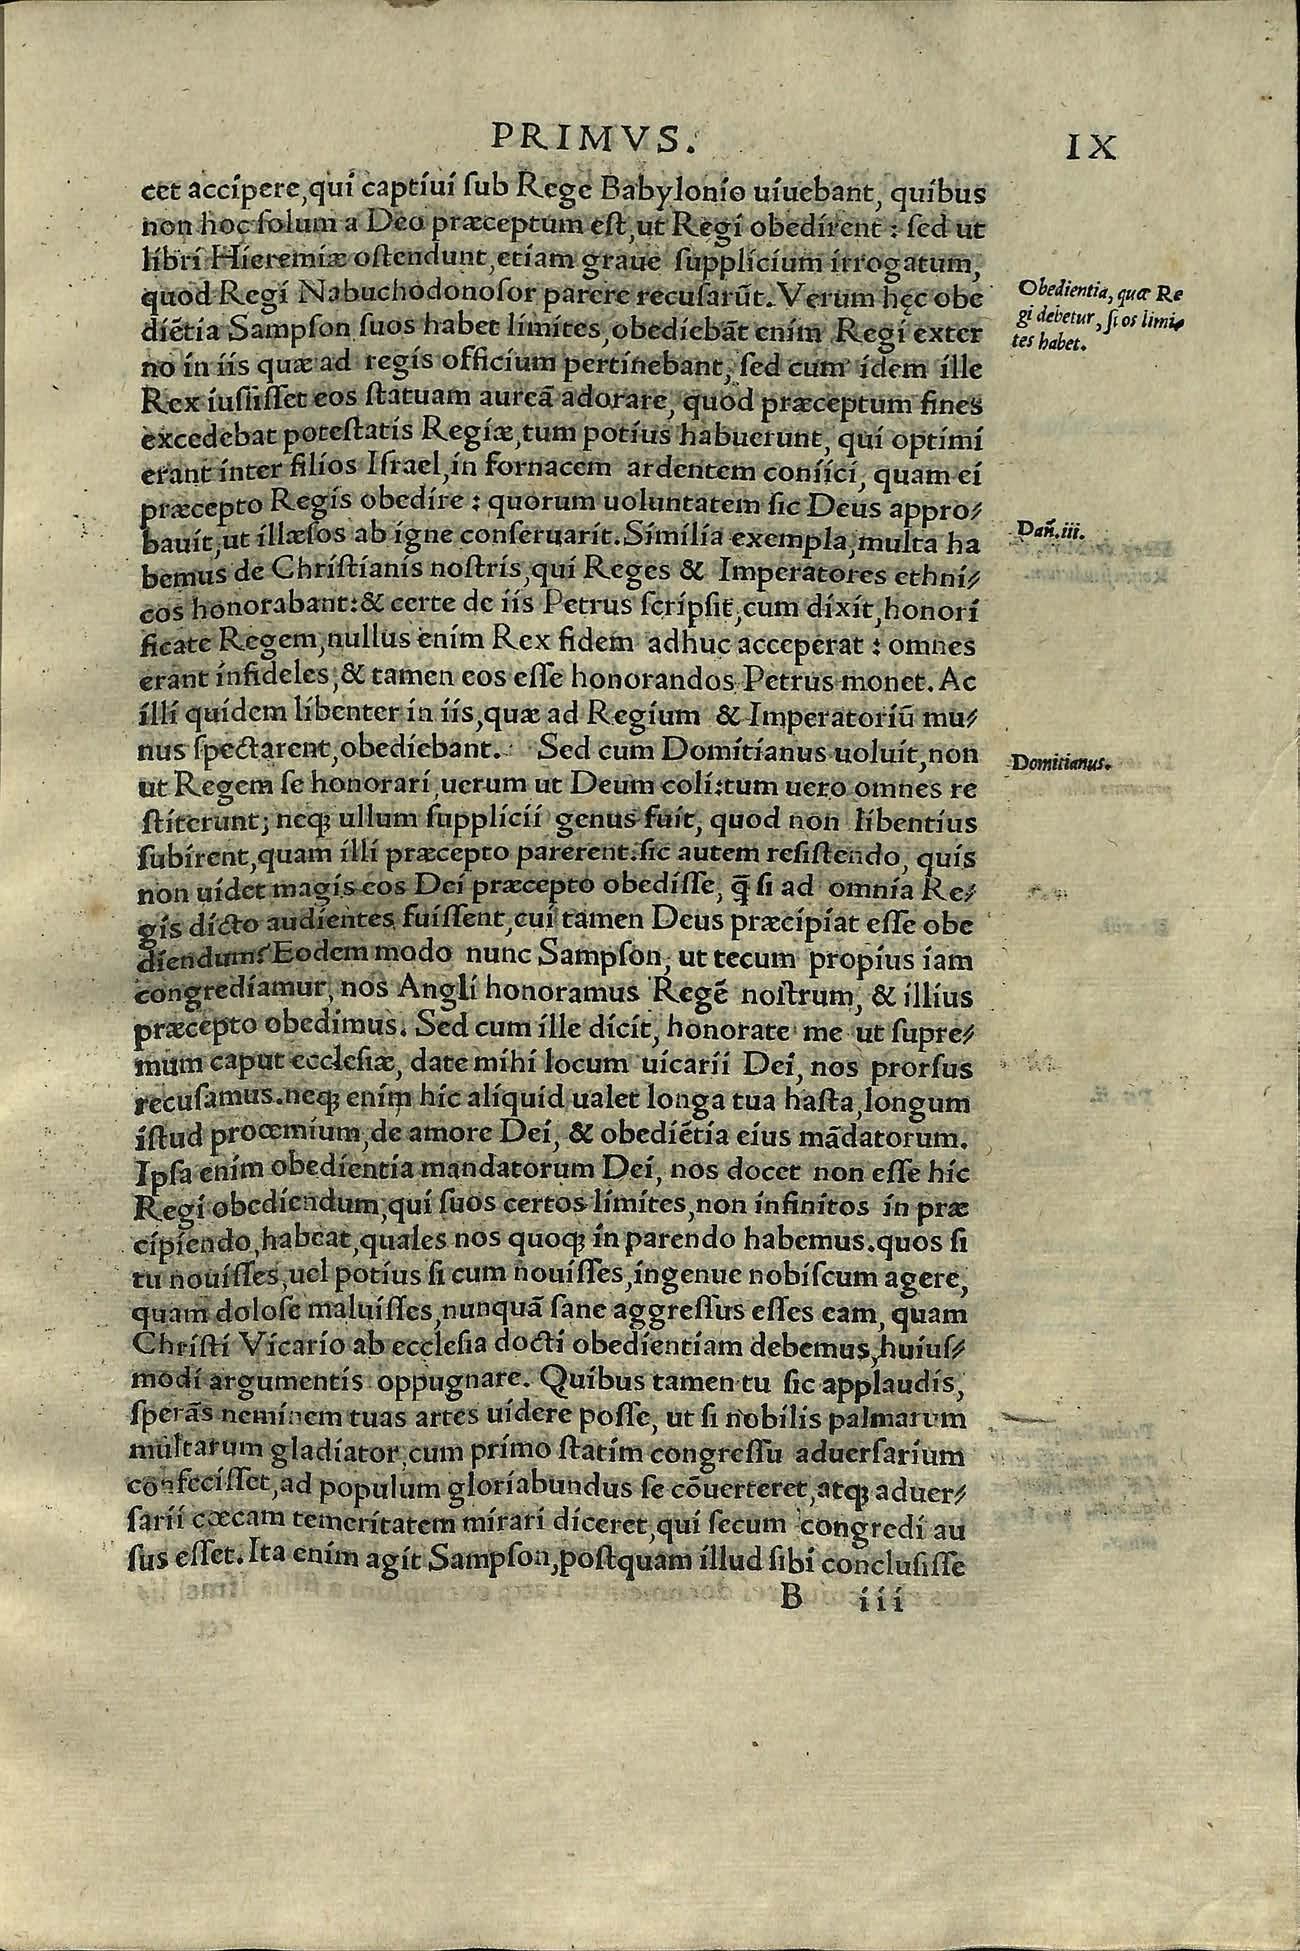 PRIMVS.
IX
cet accipere, qui captiui sub Rege Babylonio uiuebant, quibus
non hoc solum a Deo præceptum est, ut Regi obedirent: sed ut
libri Hieremiæ ostendunt, etiam graue supplicium irrogatum,
quod Regi Nabuchodonosor parere recusarūt. Verum hęc obe
diētia Sampson suos habet limites, obediebāt enim Regi exter
no in iis quæ ad regis officium pertinebant, sed cum idem ille
Rex iussisset eos statuam aureā adorare, quod præceptum fines
excedebat potestatis Regiæ, tum potius habuerunt, qui optimi
erant inter filios Israel, in fornacem ardentem coniici, quam ei
præcepto Regis obedire: quorum uoluntatem sic Deus appro⸗
bauit, ut illæsos ab igne conseruarit. Similia exempla, multa ha
bemus de Christianis nostris, qui Reges & Imperatores ethni⸗
cos honorabant: & certe de iis Petrus scripsit, cum dixit, honori
ficate Regem, nullus enim Rex fidem adhuc acceperat: omnes
erant infideles, & tamen eos esse honorandos Petrus monet. Ac
illi quidem libenter in iis, quæ ad Regium & Imperatoriū mu⸗
nus spectarent, obediebant. Sed cum Domitianus uoluit, non
ut Regem se honorari, uerum ut Deum coli: tum uero omnes re
stiterunt; neq; ullum supplicii genus fuit, quod non libentius
subirent, quam illi præcepto parerent: sic autem resistendo, quis
non uidet magis eos Dei præcepto obedisse, q̄ si ad omnia Re⸗
gis dicto audientes fuissent, cui tamen Deus præcipiat esse obe
diendum? Eodem modo nunc Sampson, ut tecum propius iam
congrediamur, nos Angli honoramus Regē nostrum, & illius
præcepto obedimus. Sed cum ille dicit, honorate me ut supre⸗
mum caput ecclesiæ, date mihi locum uicarii Dei, nos prorsus
recusamus. neq; enim hic aliquid ualet longa tua hasta, longum
istud proœmium, de amore Dei, & obediētia eius mādatorum.
Ipsa enim obedientia mandatorum Dei, nos docet non esse hic
Regi obediendum, qui suos certos limites, non infinitos in præ
cipiendo, habeat, quales nos quoq; in parendo habemus. quos si
tu nouisses, uel potius si cum nouisses, ingenue nobiscum agere,
quam dolose maluisses, nunquā sane aggressus esses eam, quam
Christi Vicario ab ecclesia docti obedientiam debemus, huius⸗
modi argumentis oppugnare. Quibus tamen tu sic applaudis,
sperās neminem tuas artes uidere posse, ut si nobilis palmarum
multarum gladiator, cum primo statim congressu aduersarium
confecisset, ad populum gloriabundus se cōuerteret, atq; aduer⸗
sarii cæcam temeritatem mirari diceret, qui secum congredi au
sus esset. Ita enim agit Sampson, postquam illud sibi conclusisse
B iii
Obedientia, quæ Re
gi debetur, suos limi⸗
tes habet.
Dañ. iii.
Domitianus.